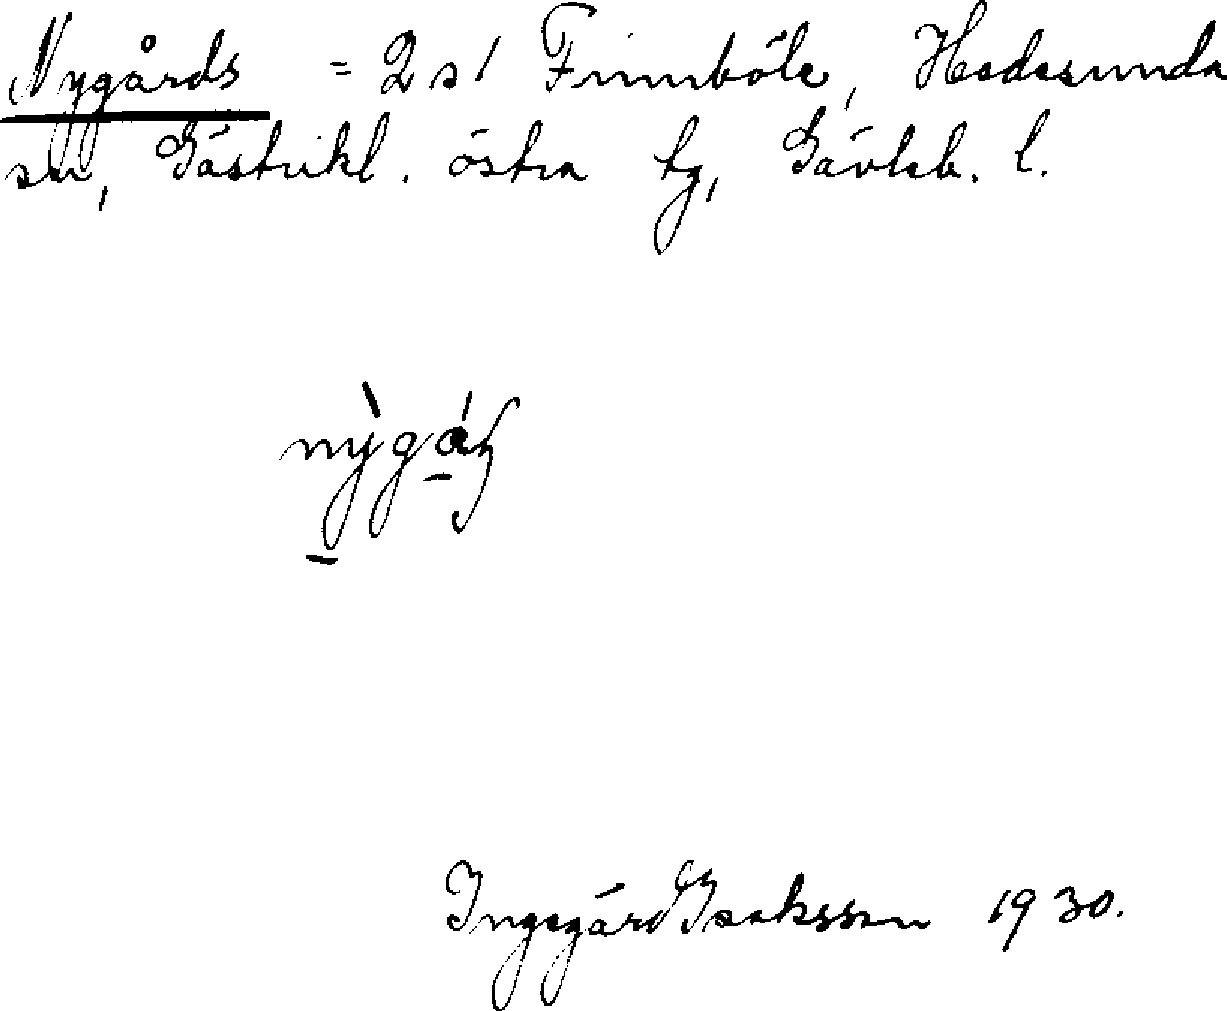 Nygårds = 2 s/ Finnböle, Hedesunda
sn, Gästrikl. östra tg, Gävleb. l.
Ingegärd Isaksson 1930.